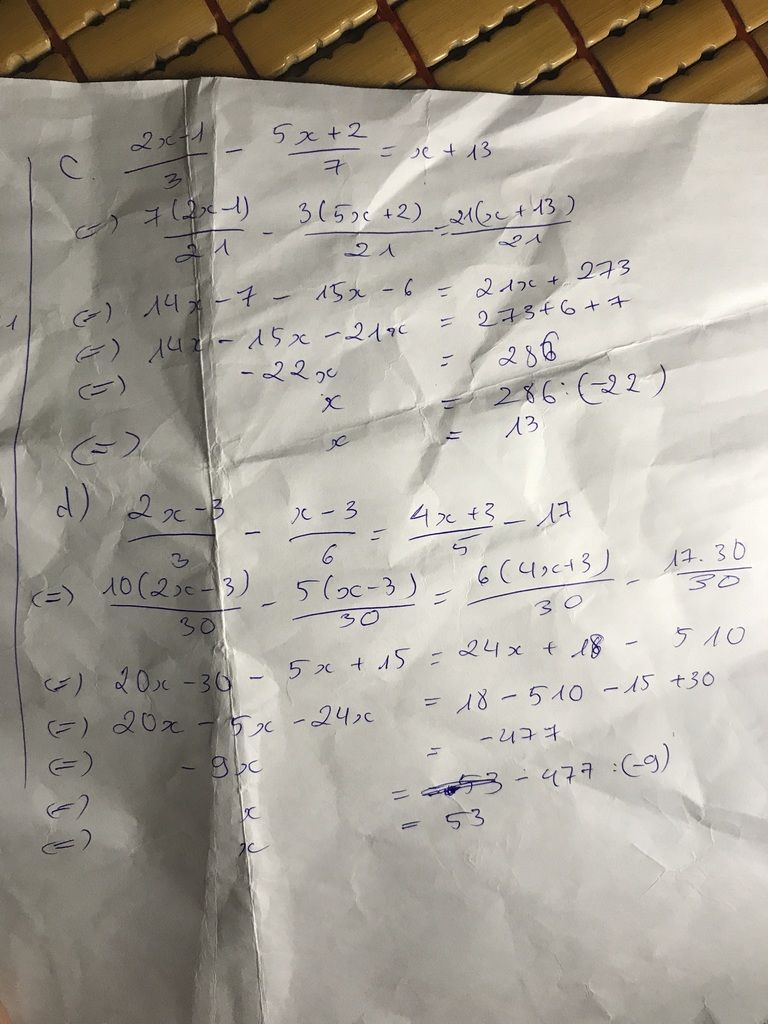 c. (2x-1)/3 - (5x+2)/7 = x + 13
(=) 7(2x-1)/21 - 3(5x+2)/21 = 21(x+13)/21
(=) 14x - 7 - 15x - 6 = 21x + 273
(=) 14x - 15x - 21x = 273+6+7
(=) -22x = 286
(=) x = 286:(-22)
x = 13
d) (2x-3)/3 - (x-3)/6 = (4x+3)/5 - 17
(=) 10(2x-3)/30 - 5(x-3)/30 = 6(4x+3)/30 - 17.30/30
(=) 20x - 30 - 5x + 15 = 24x + 18 - 510
(=) 20x - 5x - 24x = 18 - 510 - 15 + 30
(=) - 9x = -477
(=) x = - 477 :(-9)
(=) x = 53
1